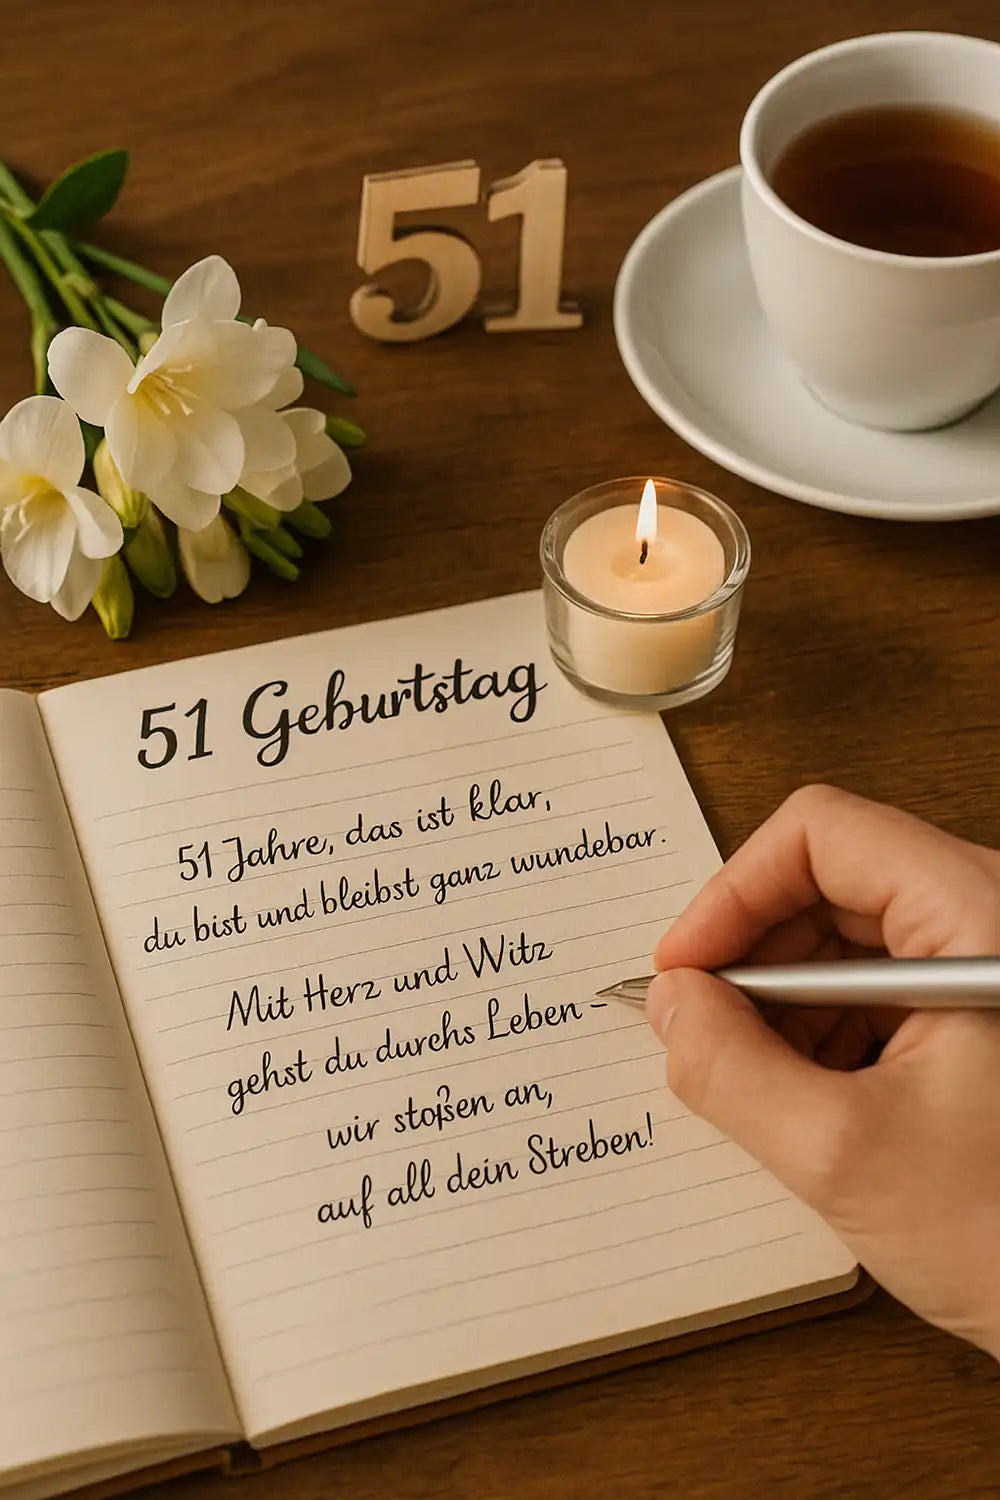 51
51 Geburtstag
51 Jahre, das ist klar,
du bist und bleibst ganz wundebar.
Mit Herz und Witz
gehst du durehs Leben –
wir stoßen an,
auf all dein Streben!